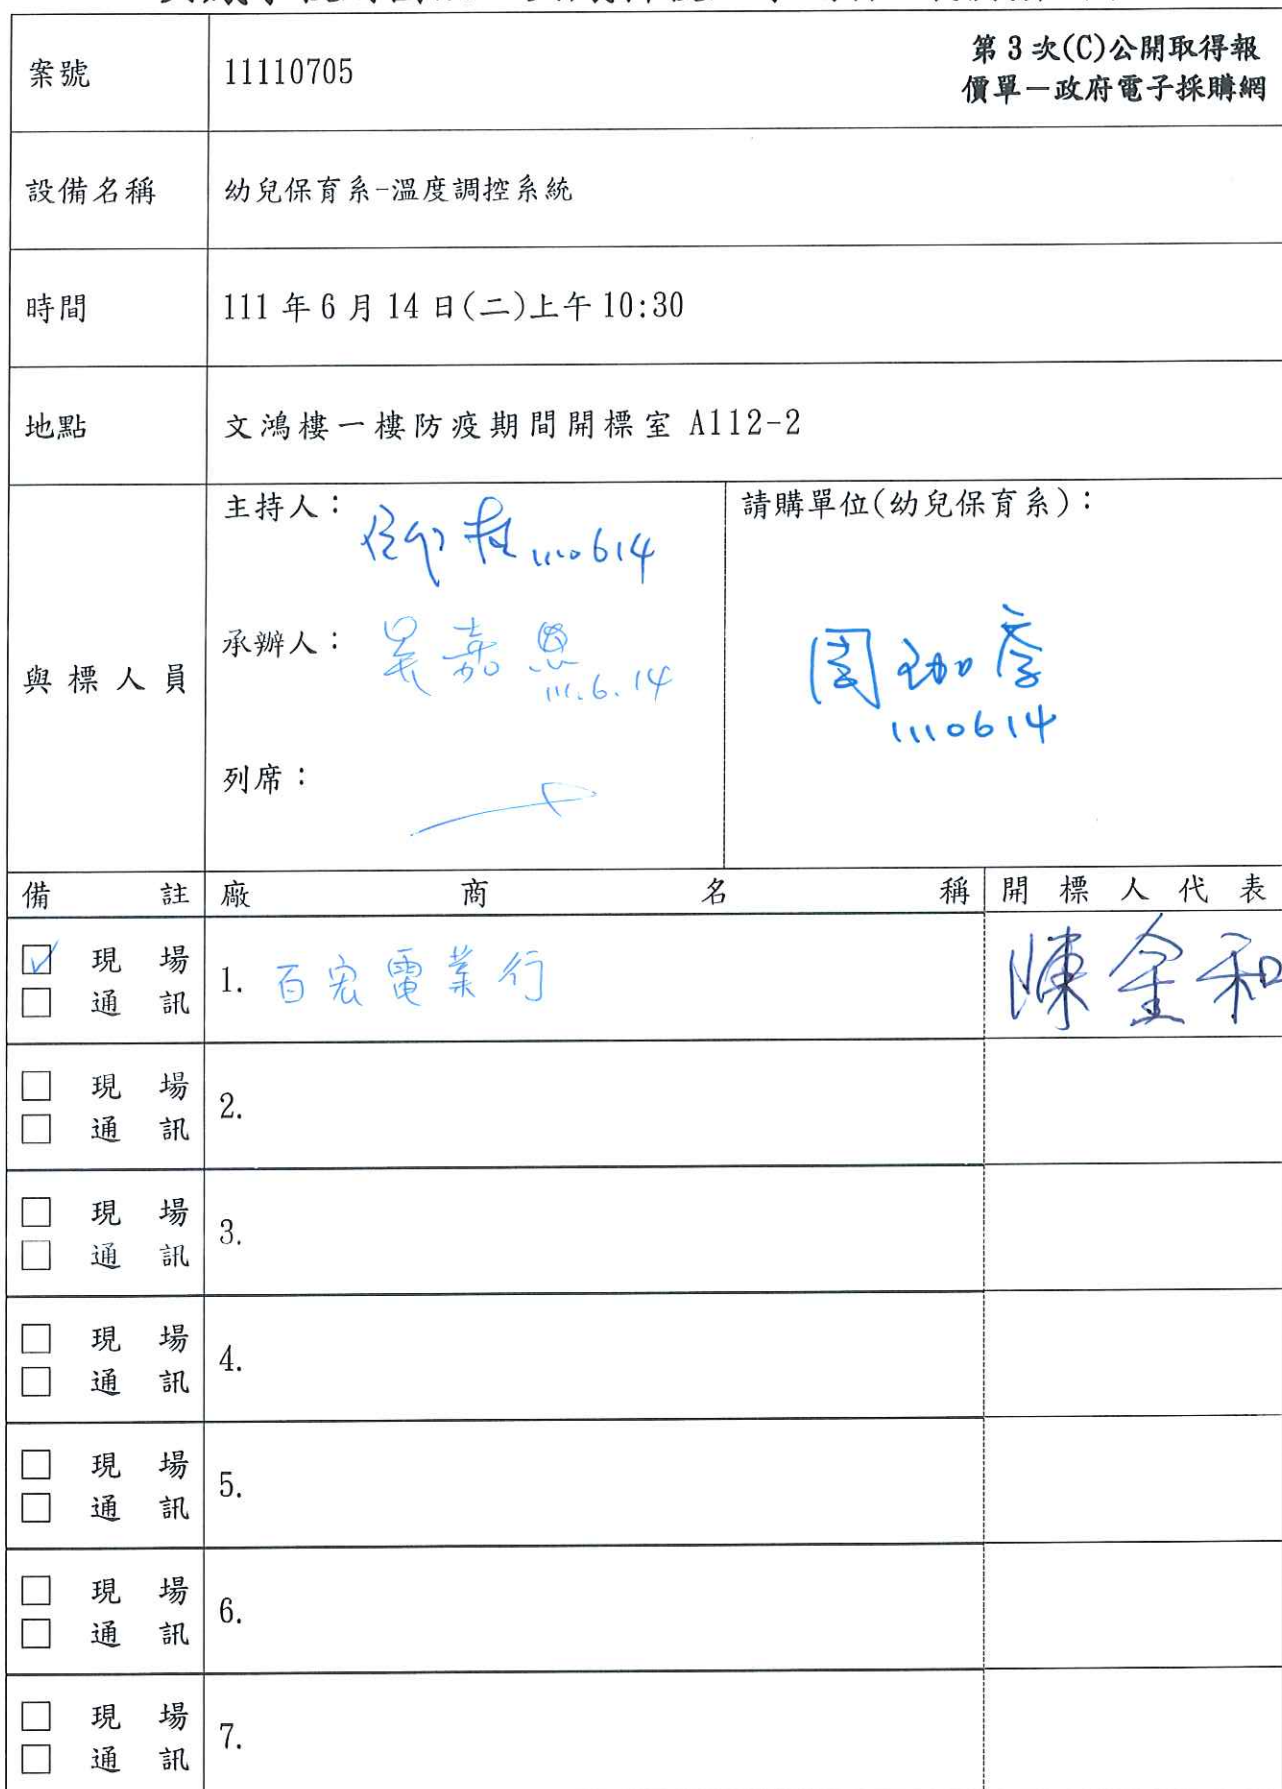 案號 11110705 第3次(C)公開取得報
價單－政府電子採購網
設備名稱 幼兒保育系-溫度調控系統
時間 111年6月14日(二)上午10:30
地點 文鴻樓一樓防疫期間開標室 A112-2
與標人員
主持人： 1110614
承辦人： 吳嘉恩 111.6.14
列席：
請購單位(幼兒保育系)：
周
1110614
備註 廠商名稱 開標人代表
☑ 現場
☐ 通訊
1. 百宏電業行 陳金和
☐ 現場
☐ 通訊
2.
☐ 現場
☐ 通訊
3.
☐ 現場
☐ 通訊
4.
☐ 現場
☐ 通訊
5.
☐ 現場
☐ 通訊
6.
☐ 現場
☐ 通訊
7.